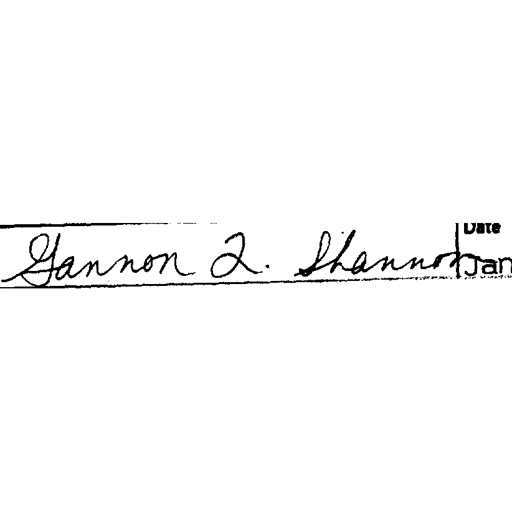 Gannon Q. Shannon
Date
Jan